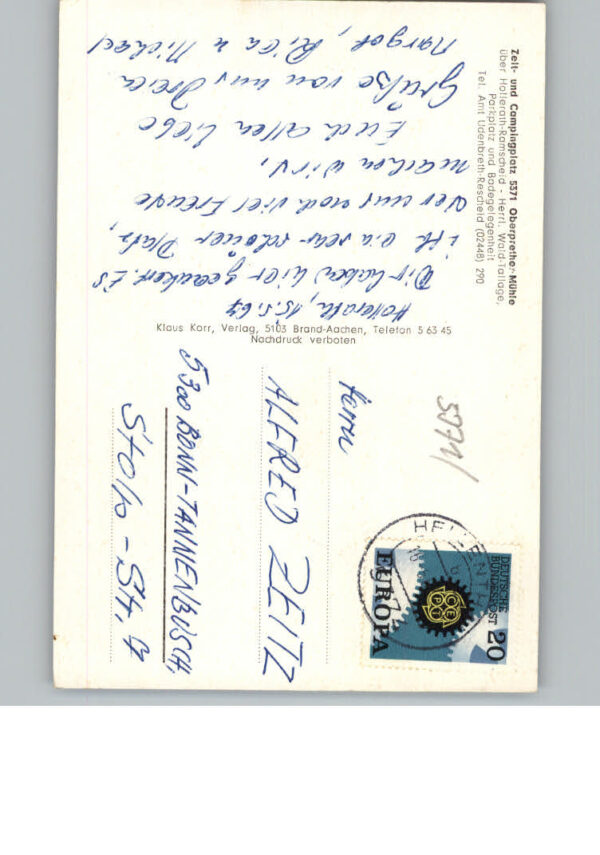 Zelt- und Campingplatz 5371 Oberprether-Mühle
über Hollerath-Ramscheid - Herrl. Wald-Tallage,
Parkplatz und Badegelegenheit
Tel. Amt Udenbreth-Rescheid (02448) 290
Hollerath, 15.5.67
Wir haben hier gezeltet. Es
ist ein sehr schöner Platz,
der uns noch viel Freude
machen wird.
Euch allen liebe
Grüße von uns Dreien
Margot, Rita u Michael
Klaus Korr, Verlag, 5103 Brand-Aachen, Telefon 5 63 45
Nachdruck verboten
5371/
Herrn
ALFRED ZEITZ
5300 BONN-TANNENBUSCH
Stolp-Str. 4
HELLENTHAL
DEUTSCHE
BUNDESPOST
20
CEPT
EUROPA